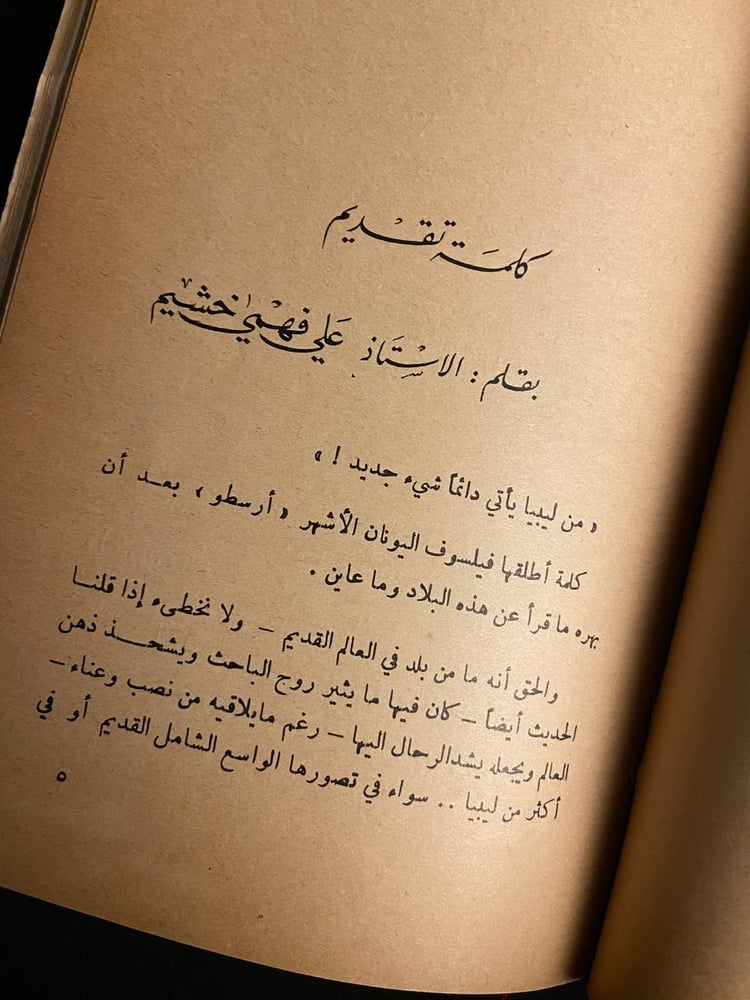 كلمة تقديم
بقلم : الاستاذ علي فهمي خشيم
« من ليبيا يأتي دائماً شيء جديد ! »
كلمة أطلقها فيلسوف اليونان الأشهر « أرسطو » بعد أن
بهره ما قرأ عن هذه البلاد وما عاين .
والحق أنه ما من بلد في العالم القديم – ولا نخطىء إذا قلنا
الحديث أيضاً – كان فيها ما يثير روح الباحث ويشحذ ذهن
العالم ويجعله يشدالرحال اليها – رغم مايلاقيه من نصب وعناء –
أكثر من ليبيا .. سواء في تصورها الواسع الشامل القديم أو في
٥